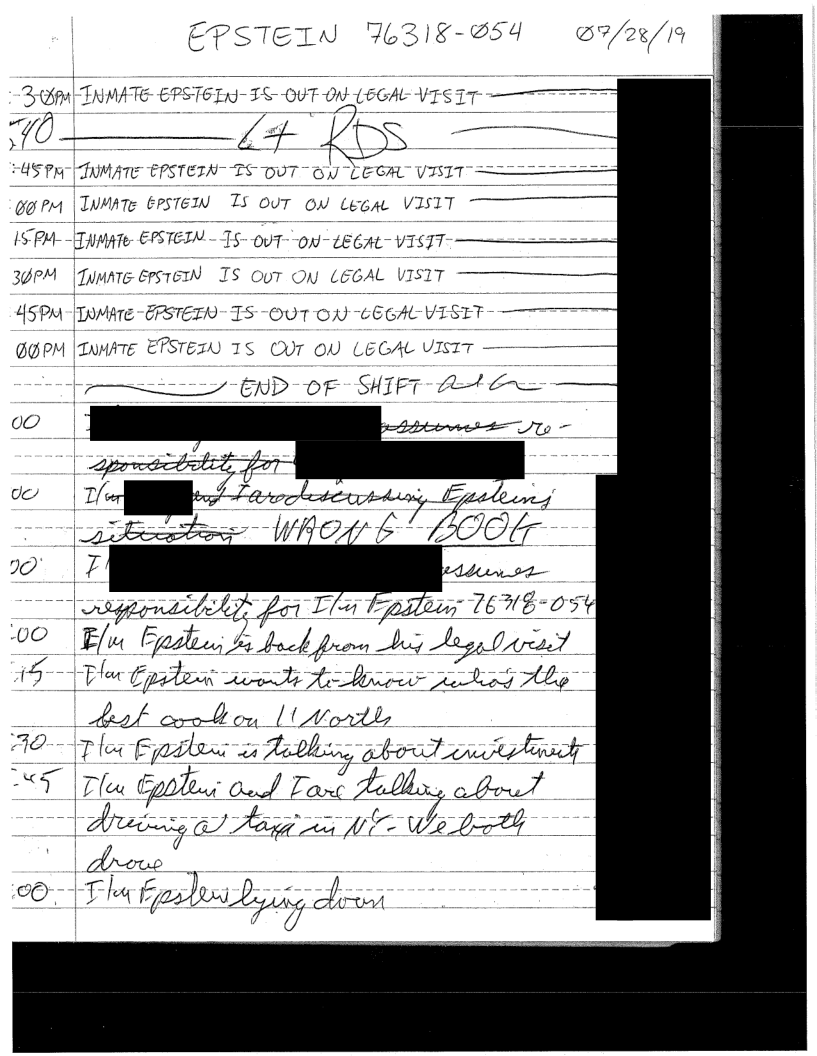 EPSTEIN 76318-Ø54 Ø7/28/19
:3ØPM INMATE EPSTEIN IS OUT ON LEGAL VISIT
:40 Lt RDS
:45PM INMATE EPSTEIN IS OUT ON LEGAL VISIT
:ØØPM INMATE EPSTEIN IS OUT ON LEGAL VISIT
15PM INMATE EPSTEIN IS OUT ON LEGAL VISIT
3ØPM INMATE EPSTEIN IS OUT ON LEGAL VISIT
45PM INMATE EPSTEIN IS OUT ON LEGAL VISIT
ØØPM INMATE EPSTEIN IS OUT ON LEGAL VISIT
END OF SHIFT
00 assumes re-
sponsibility for
00 I/m and I are discussing Epstein's
situation WRONG BOOK
00 I/ assumes
responsibility for I/m Epstein 76318-054
:00 I/m Epstein is back from his legal visit
:15 I/m Epstein wants to know who's the
best cook on 11 North
:30 I/m Epstein is talking about investments
:45 I/m Epstein and I are talking about
driving a taxi in NY - We both
drove
:00 I/m Epstein lying down